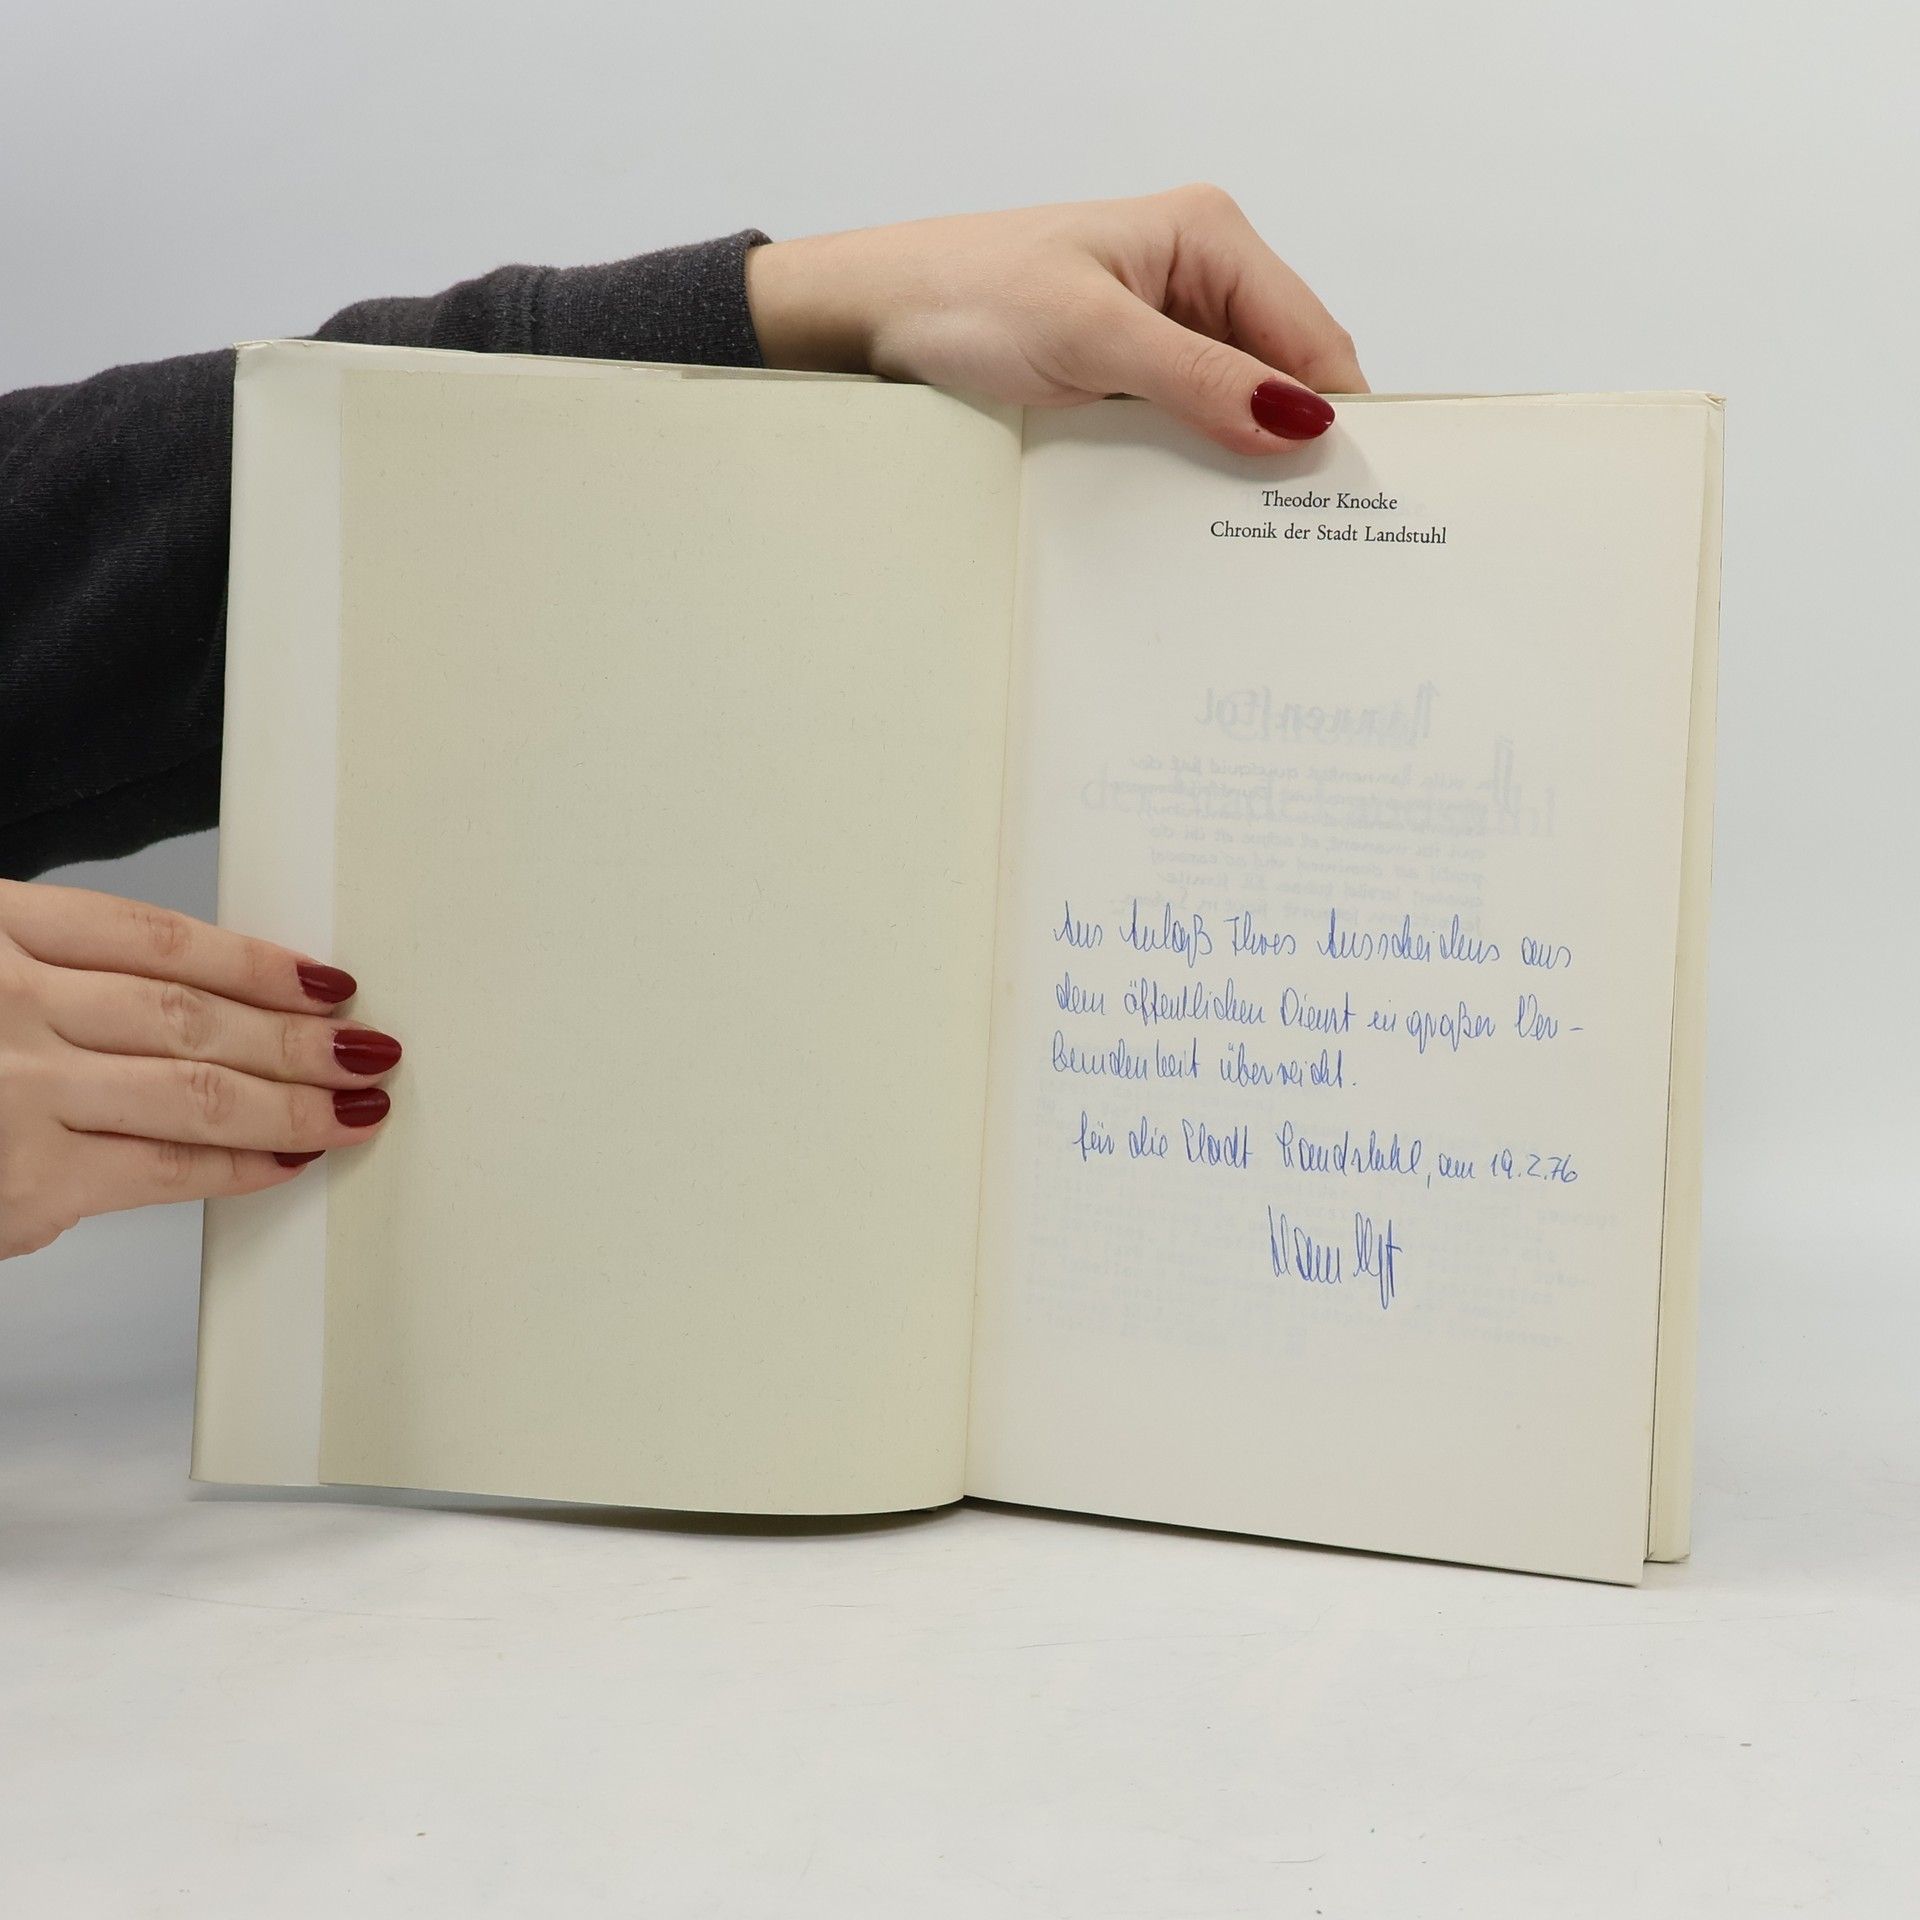 Theodor Knocke
Chronik der Stadt Landstuhl
Aus Anlaß Ihres Ausscheidens aus
dem öffentlichen Dienst in großer Ver-
bundenheit überreicht.
für die Stadt Landstuhl, am 19.2.76